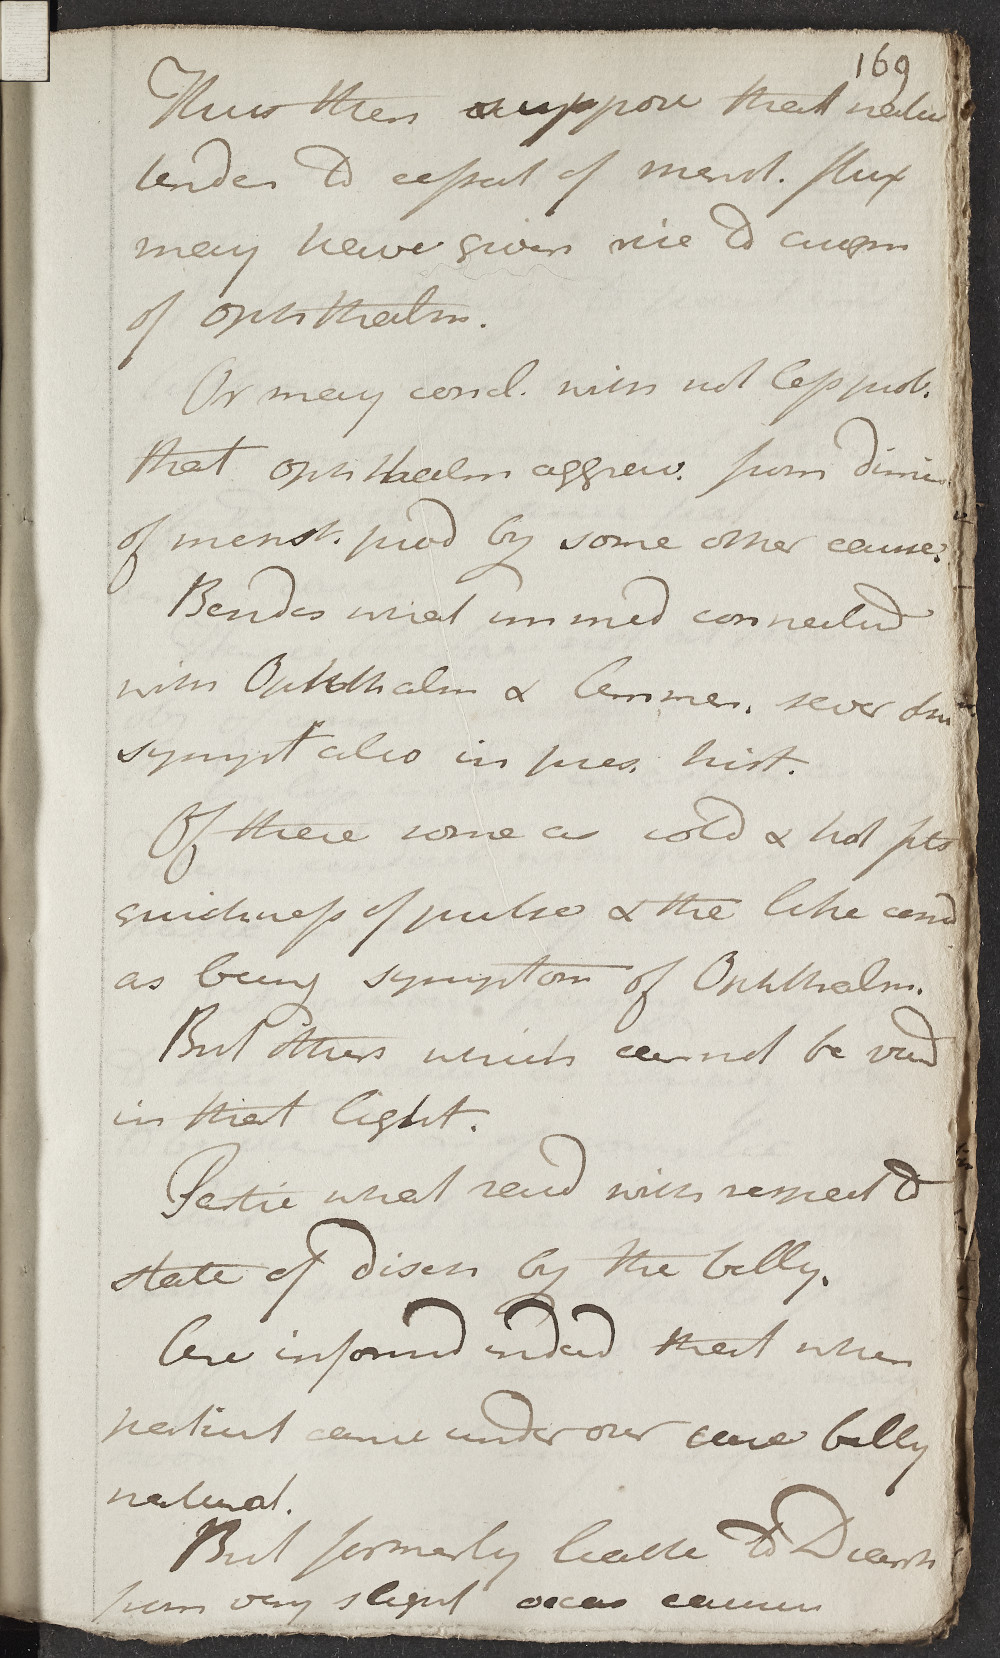 169
Thus then suppose that natur
tenden to cessat of menst. flux
may have given rise to augm
of ophthalm.
Or may concl. with not less prob.
that ophthalm aggrav. from dimin
of menst. prod by some other cause.
Besides what immed connected
with Ophthalm & Commen. sever
sympt also in pres. hist.
Of these some as cold & hot fits
quickness of pulse & the like cons
as being symptom of Ophthalm.
But others which cannot be
in that light.
Partic what said with respect to
state of disch by the belly.
Are informd indeed that when
patient came under our care belly
natural.
But formerly liable to Diarrh
from very slight occas causes